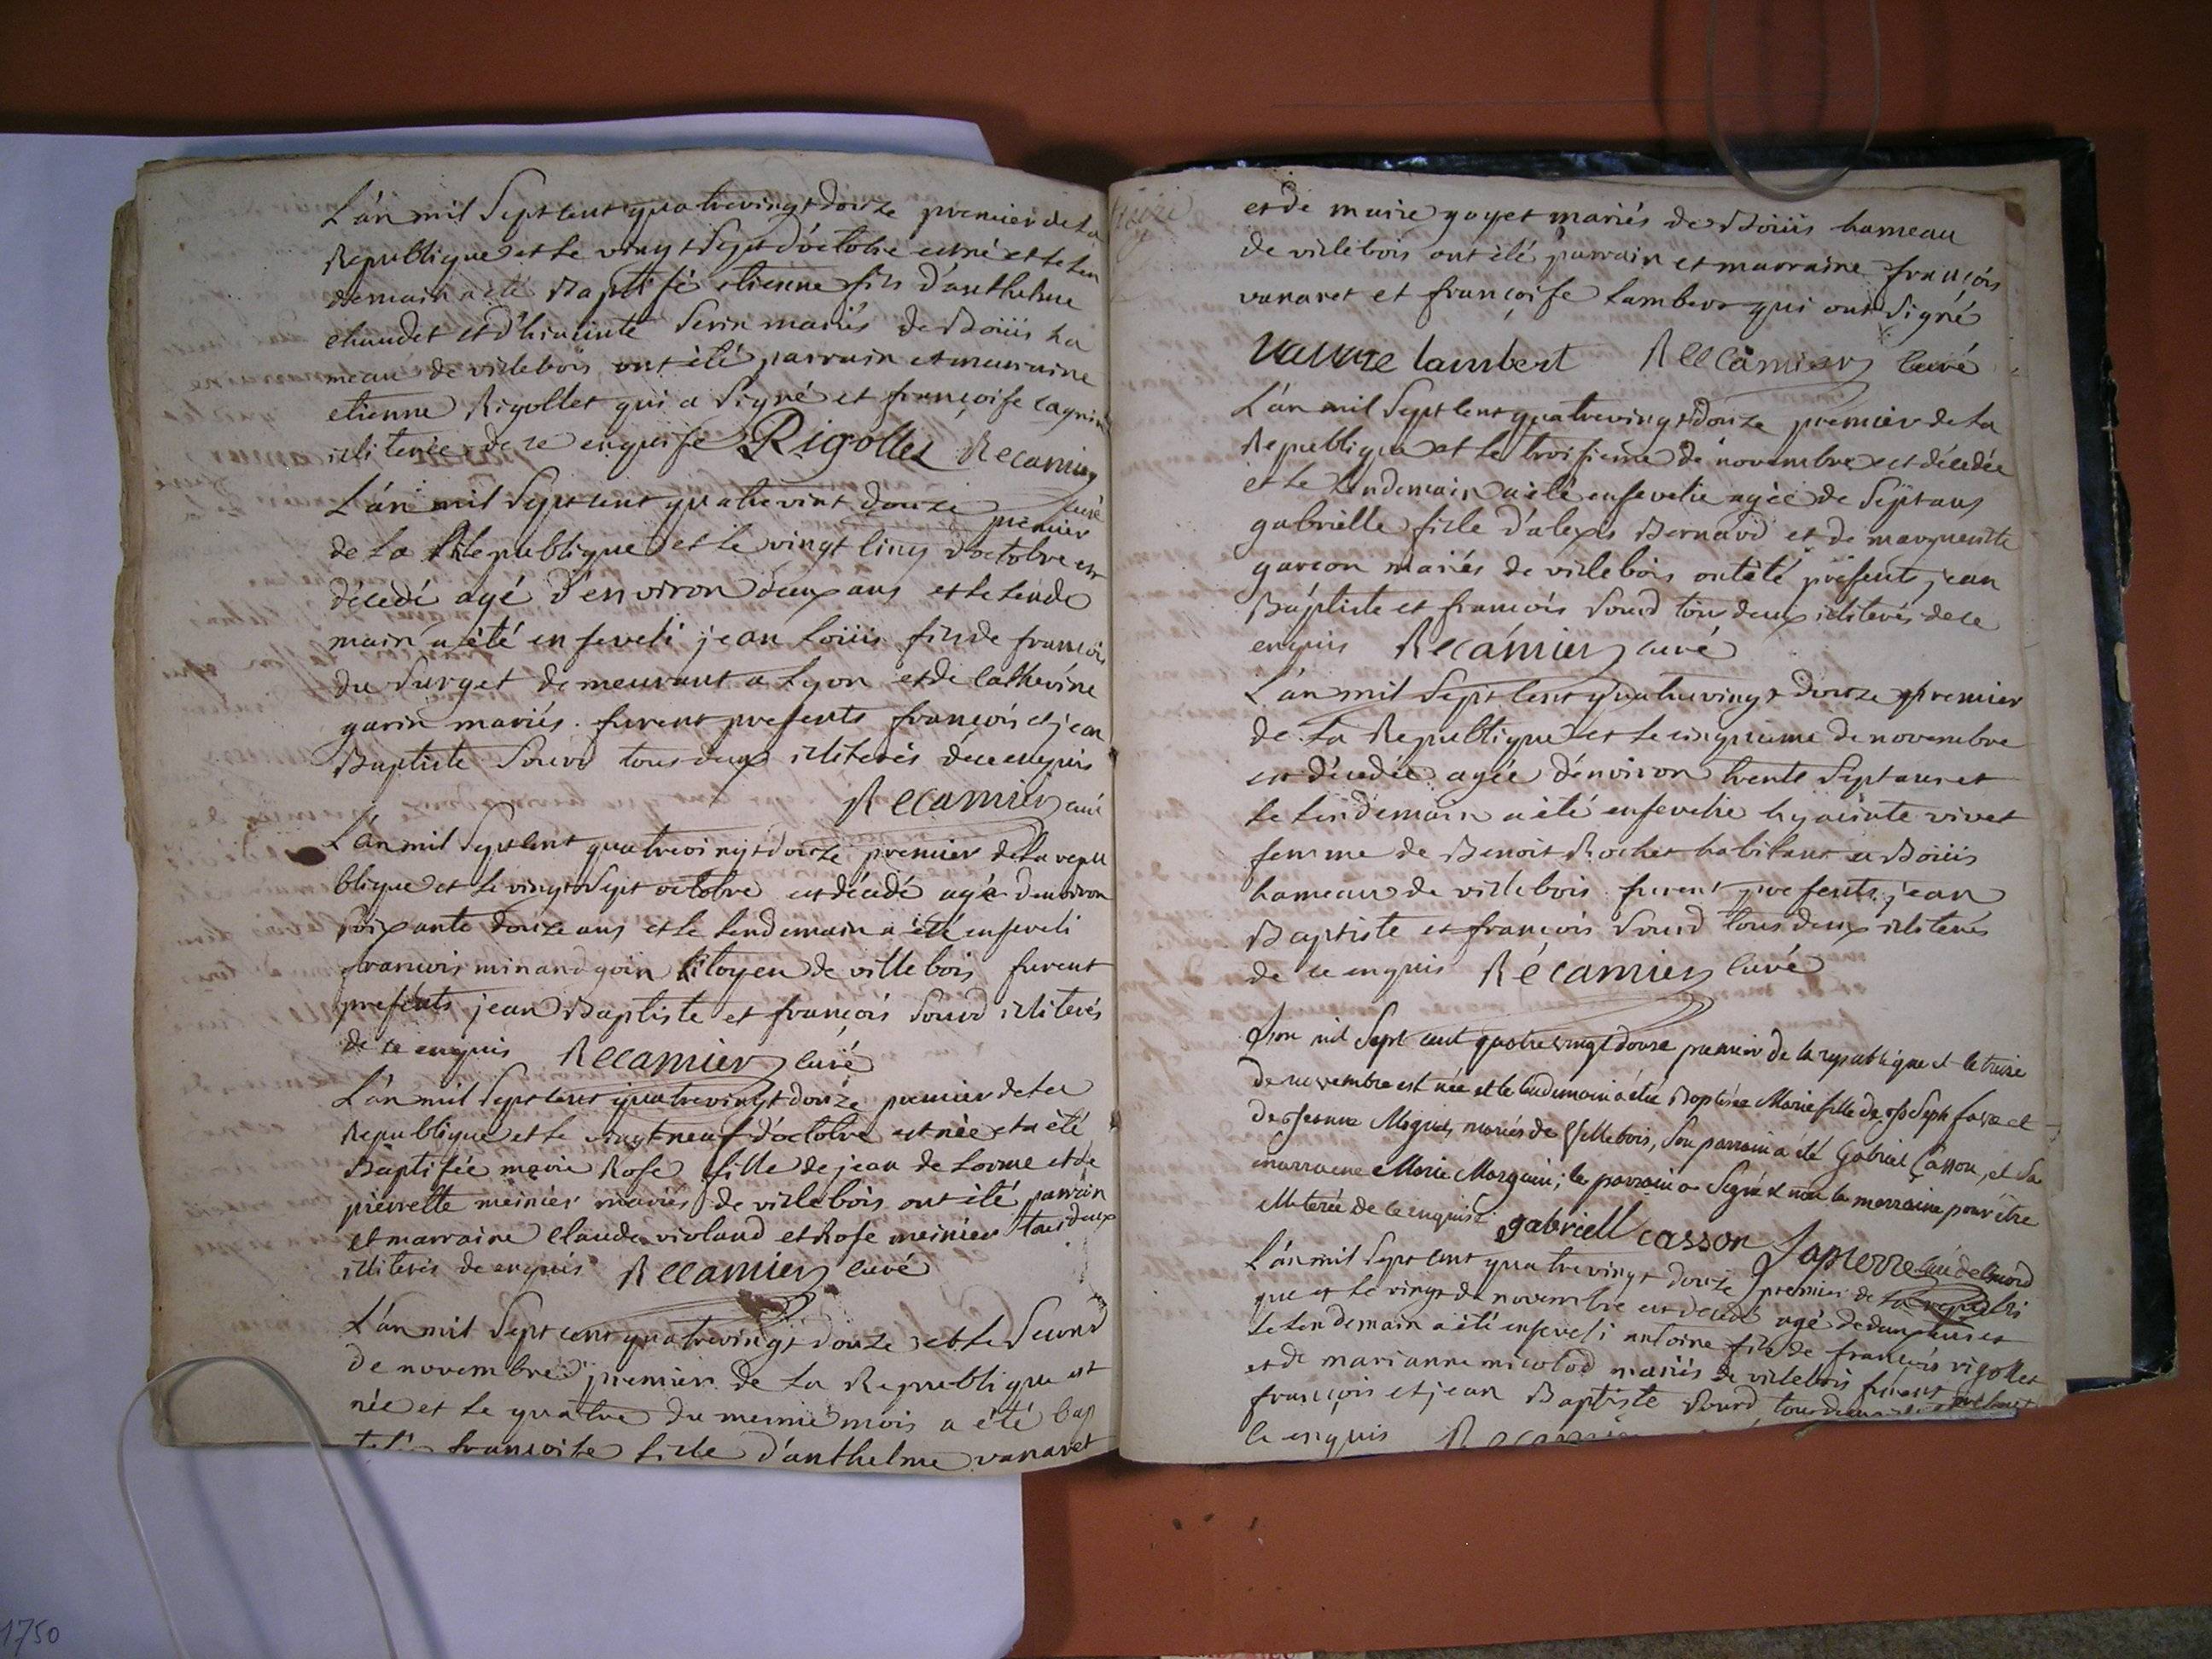 L'án mil Sept cent quatrevingt douze premier de la
Republique et le vingt Sept d'octobre est né et le len
demain a été Baptisé etienne fils d'anthelme
chaudet et d'hiacinte Serin mariés de Boüis ha
meau de villebois ont été parrain et marraine
etienne Rigollet qui a Signé et françoise
illiterée de ce enquise Rigollet Recamier
curé
L'án mil Sept cent quatrevint douze premier
de la Republique et le vingt cinq d'octobre est
décedé agé d'environ deux ans et le lende
main a été enseveli jean Loüis fils de françois
du Surget demeurant a Lyon et de catherine
garin mariés. furent presents françois et jean
Baptiste Sourd tous deux illiterés de ce enquis
Recamier curé
L'án mil Sept cent quatrevingt douze premier de la repu
blique et le vingt Sept octobre est décedé agé d'environ
Soixante douze ans et le lendemain a été enseveli
francois minandgoin citoyen de villebois furent
presents jean Baptiste et françois Sourd illiterés
de ce enquis Recamier curé
L'án mil Sept cent quatrevingt douze premier de la
Republique et le vingt neuf d'octobre est née et a été
Baptisée marie Rose fille de jean de Lorme et de
pierrette meinier mariés de villebois ont été parrain
et marraine claude violand et Rose meinier tous deux
illiterés de enquis Recamier curé
L'án mil Sept cent quatrevingt douze et le Second
de novembre premier de la Republique est
née et le quatre du meme mois a été bap
françoise fille d'anthelme vanaret
et de marie goyet mariés de Boüis hameau
de villebois ont été parrain et marraine françois
vanaret et françoise Lambert qui ont Signé
lambert Recamier curé
L'án mil Sept cent quatrevingt douze premier de la
Republique et le troisieme de novembre est décedée
et le lendemain a été ensevelie agée de Sept ans
gabrielle fille d'alexis Bernard et de marguerite
garcon mariés de villebois ont été présents jean
Baptiste et francois Sourd tous deux illiterés de ce
enquis Recamier curé
L'án mil Sept cent quatrevingt douze premier
de la Republique et le cinquieme de novembre
est décedée agée d'environ trente Sept ans et
le lendemain a été ensevelie hyacinte vivet
femme de Benoit Rochet habitant a Boüis
hameau de villebois furent presents jean
Baptiste et françois Sourd tous deux illiterés
de ce enquis Récamier curé
L'an mil Sept cent quatrevingt douze premier de la republique et le treize
de novembre est née et le lendemain a étée Baptisée Marie fille de joseph favre et
de jeanne Mignet mariés de Villebois, Son parrain a été Gabriel Casson, et Sa
marraine Marie Marguin; le parrain a Signé & non la marraine pour être
illiterée de ce enquise gabriell casson Lapierre curé de
L'án mil Sept cent quatrevingt douze premier de la republi
que et le vingt de novembre est décedé agé de deux ans et
le lendemain a été enseveli antoine fils de françois rigollet
et de marianne nicolod mariés de villebois furent presents
françois et jean Baptiste Sourd tous deux
ce enquis Recamier
1750